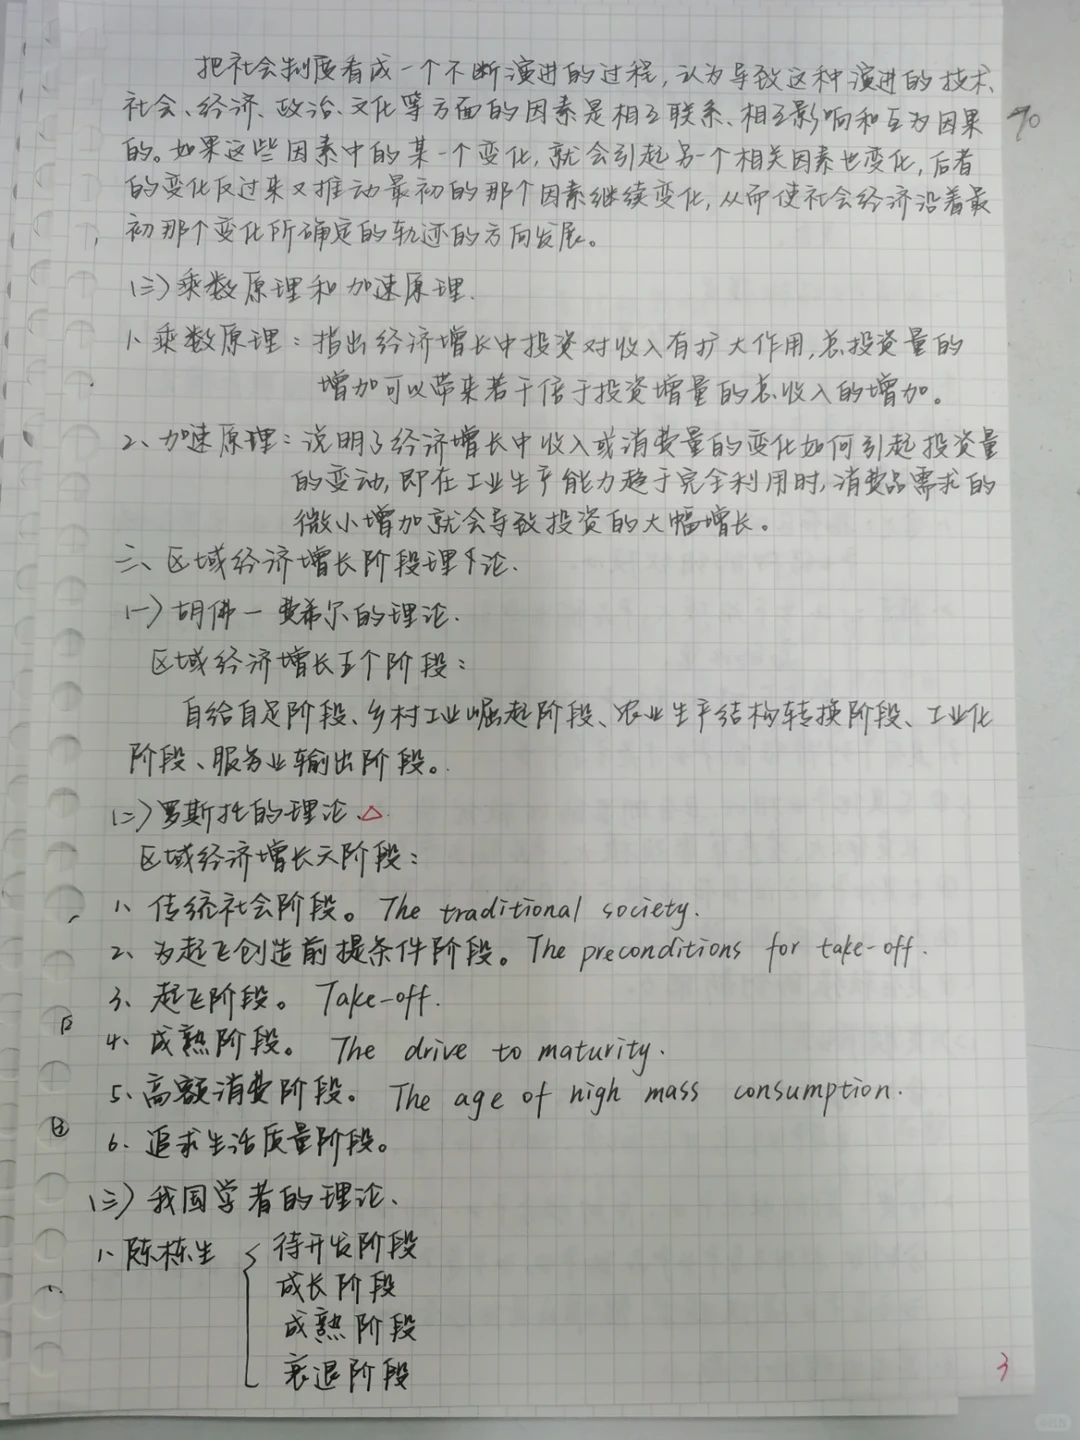 把社会制度看成一个不断演进的过程，认为导致这种演进的技术、
社会、经济、政治、文化等方面的因素是相互联系、相互影响和互为因果
的。如果这些因素中的某一个变化，就会引起另一个相关因素也变化，后者
的变化反过来又推动最初的那个因素继续变化，从而使社会经济沿着最
初那个变化所确定的轨迹的方向发展。
(三)乘数原理和加速原理.
1、乘数原理：指出经济增长中投资对收入有扩大作用，总投资量的
增加可以带来若干倍于投资增量的总收入的增加。
2、加速原理：说明了经济增长中收入或消费量的变化如何引起投资量
的变动，即在工业生产能力趋于完全利用时，消费品需求的
微小增加就会导致投资的大幅增长。
三、区域经济增长阶段理论.
(一)胡佛一费希尔的理论.
区域经济增长五个阶段：
自给自足阶段、乡村工业崛起阶段、农业生产结构转换阶段、工业化
阶段、服务业输出阶段。
(二)罗斯托的理论.△
区域经济增长六阶段：
1、传统社会阶段。The traditional society.
2、为起飞创造前提条件阶段。The preconditions for take-off.
3、起飞阶段。Take-off.
4、成熟阶段。The drive to maturity.
5、高额消费阶段。The age of high mass consumption.
6、追求生活质量阶段。
(三)我国学者的理论.
1、陈栋生
待开发阶段
成长阶段
成熟阶段
衰退阶段
3